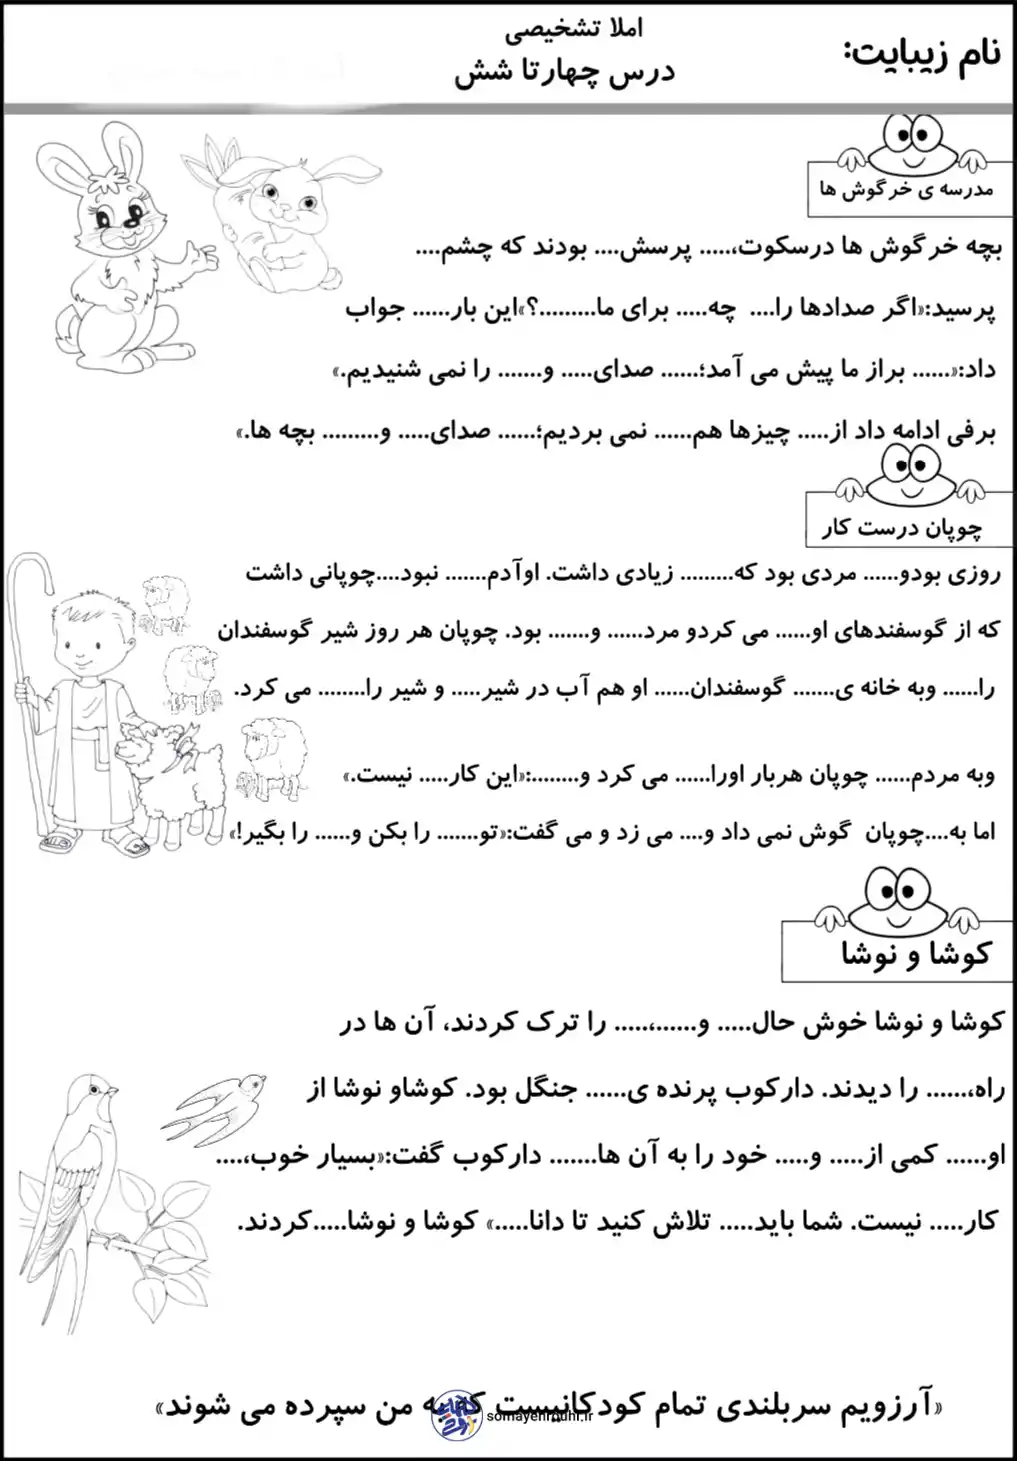 املا تشخیصی
نام زیبایت:
درس چهارتا شش
مدرسه ی خرگوش ها
بچه خرگوش ها درسکوت،..... پرسش.... بودند که چشم....
پرسید:«اگر صدادها را.... چه..... برای ما.........؟»این بار...... جواب
داد:«...... براز ما پیش می آمد؛...... صدای..... و....... را نمی شنیدیم.»
برفی ادامه داد از..... چیزها هم...... نمی بردیم؛...... صدای..... و......... بچه ها.»
چوپان درست کار
روزی بودو...... مردی بود که......... زیادی داشت. اوآدم....... نبود....چوپانی داشت
که از گوسفندهای او...... می کردو مرد...... و....... بود. چوپان هر روز شیر گوسفندان
را...... وبه خانه ی....... گوسفندان...... او هم آب در شیر..... و شیر را........ می کرد.
وبه مردم...... چوپان هربار اورا...... می کرد و........:«این کار..... نیست.»
اما به....چوپان گوش نمی داد و.... می زد و می گفت:«تو....... را بکن و...... را بگیر!»
کوشا و نوشا
کوشا و نوشا خوش حال..... و......،..... را ترک کردند، آن ها در
راه،...... را دیدند. دارکوب پرنده ی...... جنگل بود. کوشاو نوشا از
او...... کمی از..... و..... خود را به آن ها....... دارکوب گفت:«بسیار خوب،....
کار..... نیست. شما باید..... تلاش کنید تا دانا.....» کوشا و نوشا.....کردند.
«آرزویم سربلندی تمام کودکانیست که به من سپرده می شوند»